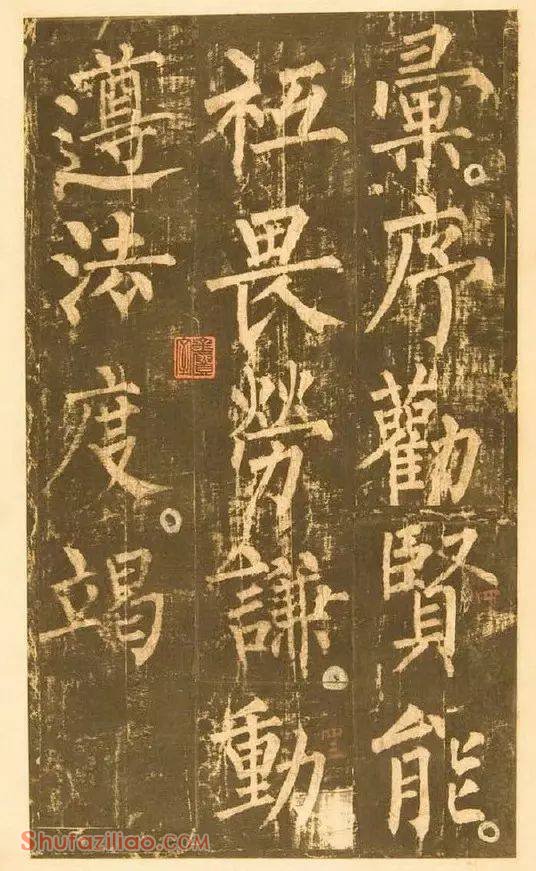 彙序勸賢能
祗畏勞謙動
遵法度竭
Shufaziliao.com